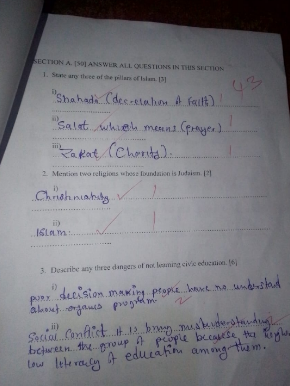 SECTION A. [30] ANSWER ALL QUESTIONS IN THIS SECTION
1. State any three of the pillars of Islam. [3]
43
i) Shahada (decrelation of faith) 1
ii) Salat which means (prayer) 1
iii) Zakat (Charity). 1
2. Mention two religions whose foundation is Judaism. [2]
i) Christniahity 1
ii) Islam 1
3. Describe any three dangers of not learning civic education. [6]
i) poor decision making people have no understand
about organis program 2
ii) Social conflict it is bring misunderstanding
between the group of people because to
low literacy of education among them.